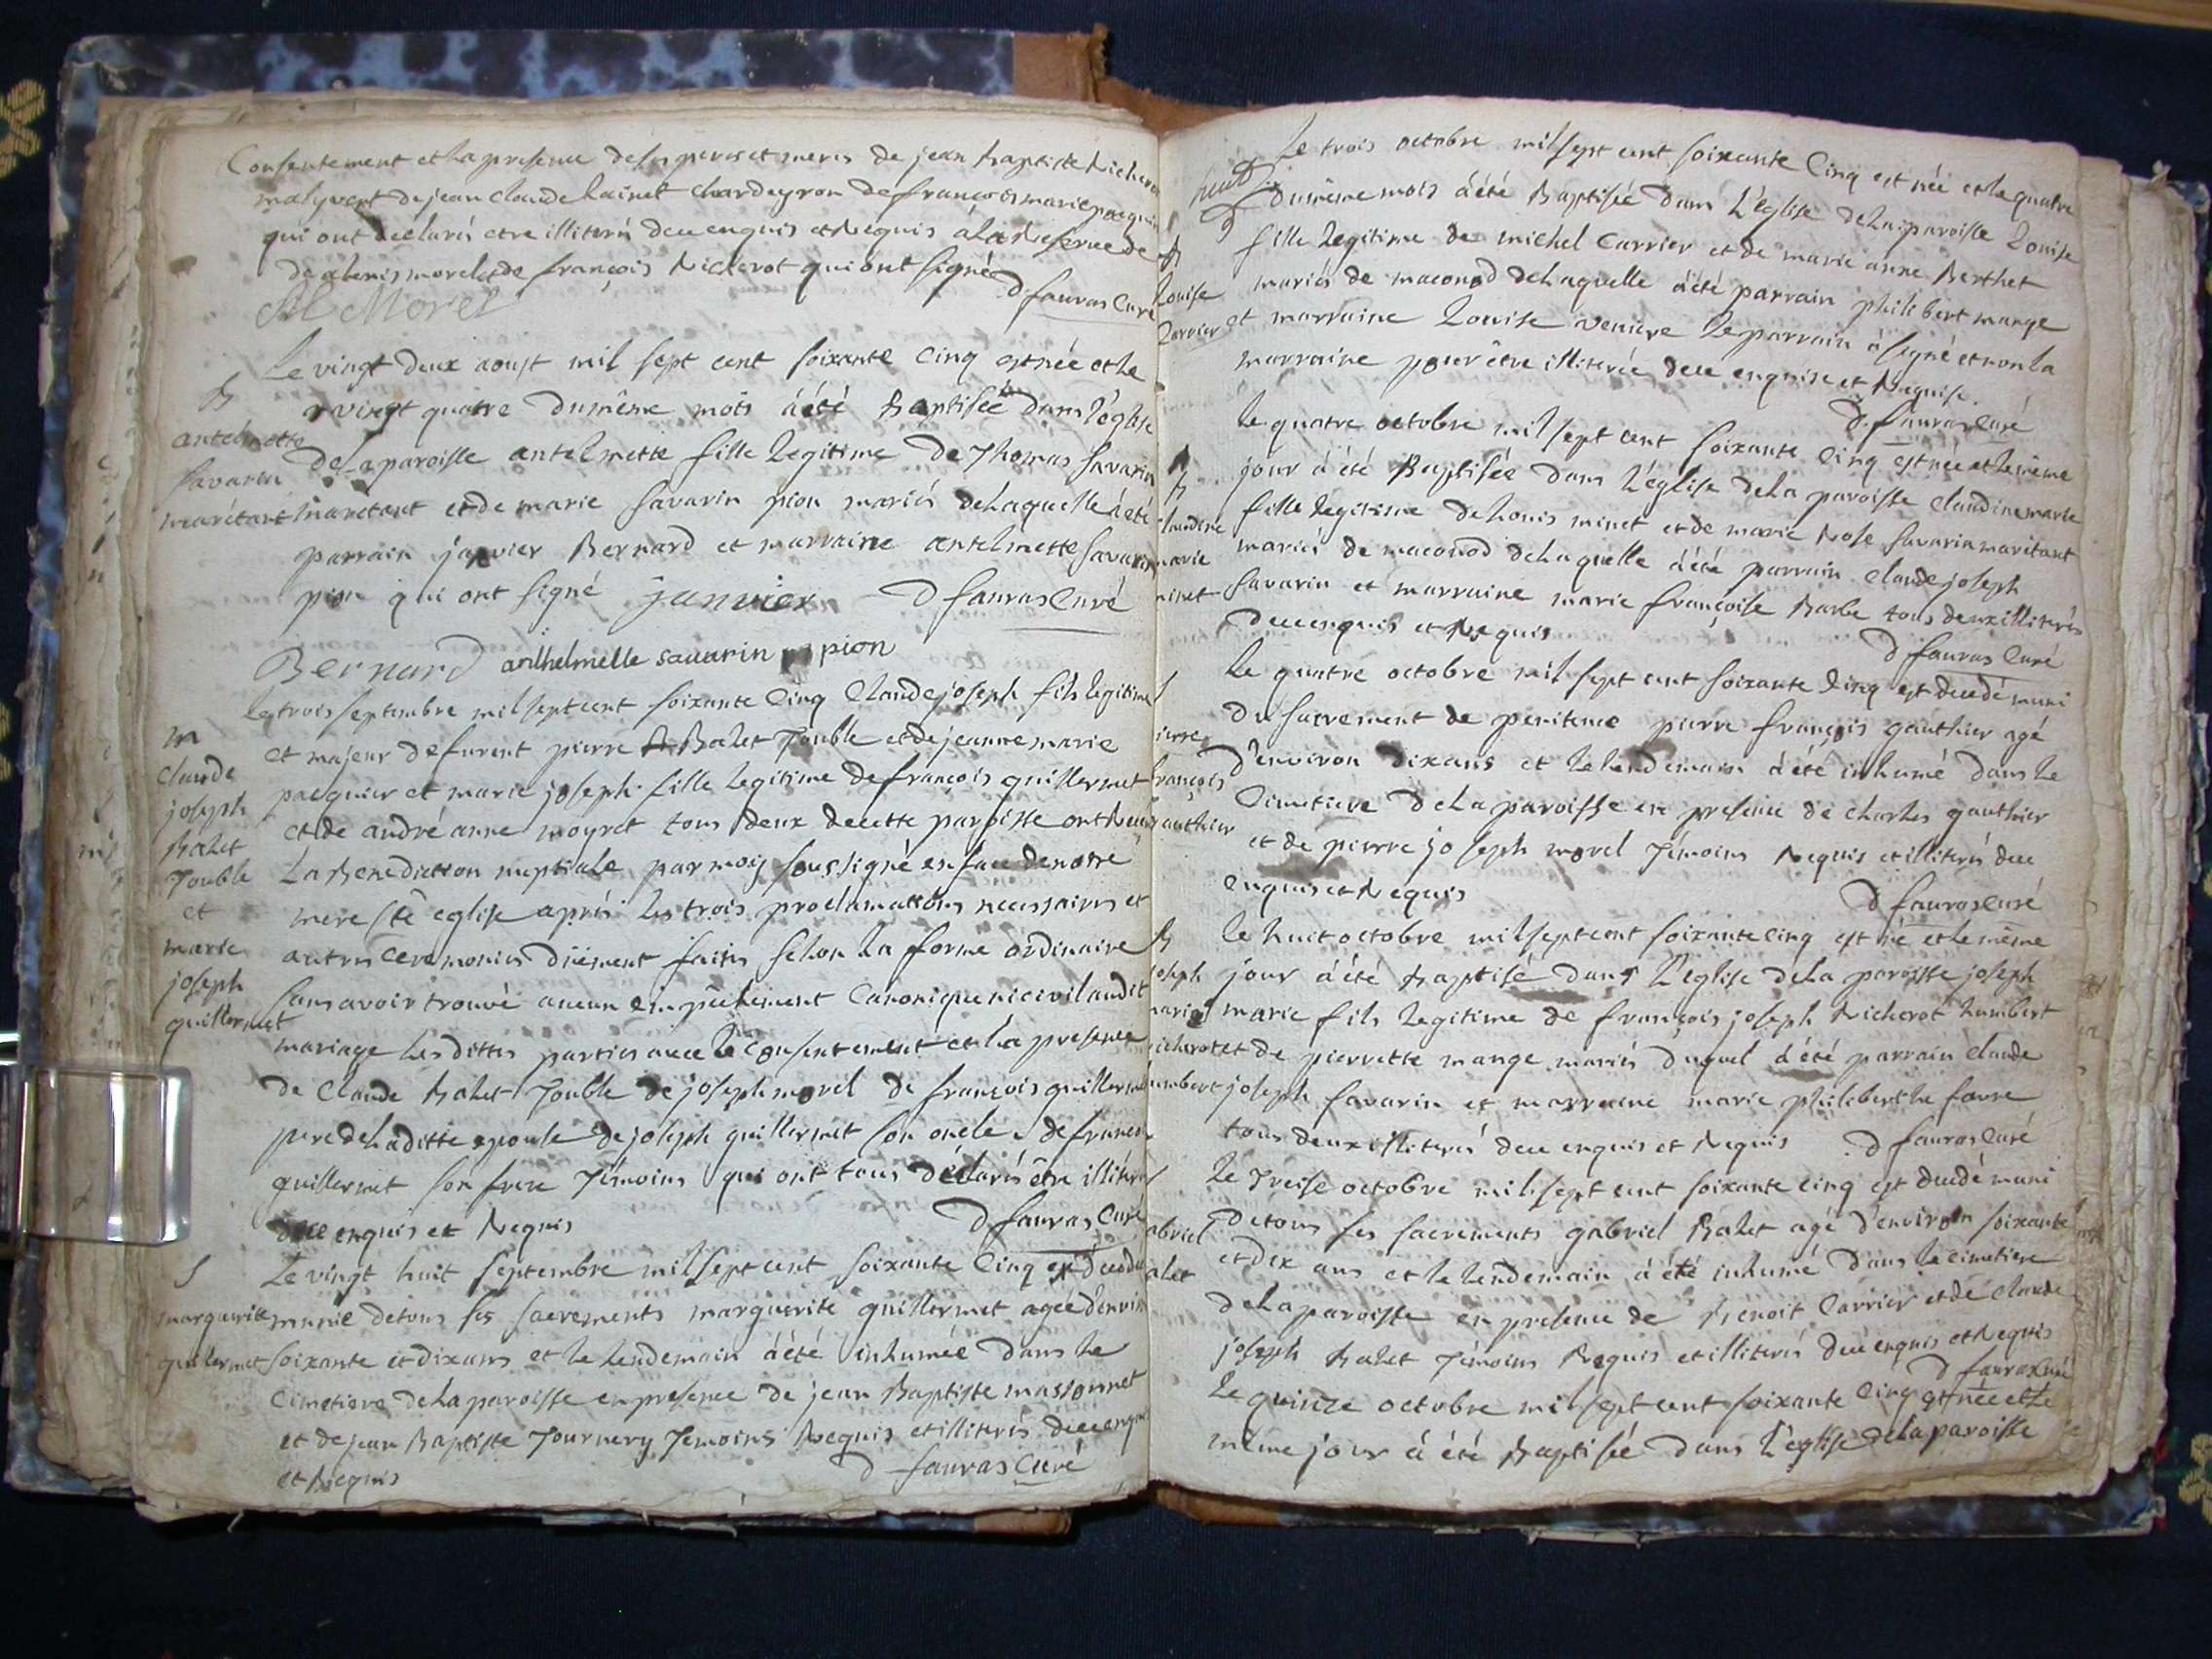 Consentement et la presence de ses peres et meres de jean Baptiste Richerot
malyvert de jean claude hainet chardeyron de françois marie pacquier
qui ont declarés etre illiterés deue enquis et Requis a la Reserve de
de alexis morel et de françois Richerot qui ont signé
D fauras Curé
Al Morel
Le vingt deux aoust mil sept cent soixante Cinq est née et le
B
vingt quatre du même mois à été Baptisée dans l'église
antelmette
de la paroisse antelmette fille legitime de Thomas savarin
savarin
maretant
maretant et de marie savarin pion mariés de laquelle à été
parrain janvier Bernard et marraine antelmette savarin
pion qui ont signé janvier D fauras Curé
Bernard anthelmette sauarin pion
le trois septembre mil sept cent soixante Cinq Claude joseph fils legitime
m
claude
joseph
Balet
Jouble
et
marie
joseph
quillermet
et majeur de furent pierre Balet Jouble et de jeanne marie
pacquier et marie joseph fille legitime de françois quillermet
et de andré anne moyret tous deux de cette paroisse ont Reçu
La Benediction nuptiale par moy soussigné en face de notre
mere ste eglise aprés les trois proclamations necessaires et
autres ceremonies düement faites selon la forme ordinaire
sans avoir trouvé aucun empêchement Canonique ni civil au dit
mariage les dittes parties avec le Consentement et la presence
de Claude Balet Jouble de joseph morel de françois quillermet
pere de la ditte epouse de joseph quillermet son oncle de francois
quillermet son frere Témoins qui ont tous déclarés être illiterés
deue enquis et Requis D fauras Curé
S
marguerite
quillermet
Le vingt huit septembre mil sept cent soixante Cinq est decedée
munie de tous ses sacrements marguerite quillermet agée d'environ
soixante et dix ans et le lendemain à été inhumée dans le
Cimetiere de la paroisse en presence de jean Baptiste massonnet
et de jean Baptiste Tournery Temoins Requis et illiterés deue enquis
et Requis D fauras Curé
Le trois octobre mil sept cent soixante Cinq est née et le quatre
huit
B
Louise
Carrier
du même mois à été Baptisée dans L'église de la paroisse Louise
fille legitime de michel Carrier et de marie anne Berthet
mariés de maconod de laquelle à été parrain philibert mange
et marraine Louise veniere le parrain à signé et non la
marraine pour être illiterée deue enquise et Requise.
D. fauras Curé
Le quatre octobre mil sept cent soixante Cinq est née et le même
B
Claudine
marie
minet
jour à été Baptisée dans L'église de la paroisse Claudine marie
fille legitime de Louis minet et de marie Rose savarin maritant
mariés de maconod de laquelle à été parrain Claude joseph
savarin et marraine marie françoise Barbe tous deux illiterés
deue enquis et Requis
D fauras Curé
Le quatre octobre mil sept cent soixante Cinq est decedé muni
S
pierre
françois
gauthier
du sacrement de penitence pierre françois gauthier agé
D'environ dix ans et le lendemain à été inhumé dans le
Cimetiere de la paroisse en presence de charles gauthier
et de pierre joseph morel Témoins Requis et illiterés deue
enquis et Requis
D fauras Curé
B
joseph
marie
richerot
humbert
le huit octobre mil sept cent soixante cinq est né et le même
jour à été Baptisé dans L'eglise de la paroisse joseph
marie fils legitime de françois joseph Richerot humbert
et de pierrette mange mariés duquel à été parrain claude
joseph savarin et marraine marie philiberthe favre
tous deux illiterés deue enquis et Requis D fauras Curé
S
gabriel
balet
le Treise octobre mil sept cent soixante cinq est decedé muni
de tous ses sacrements gabriel Balet agé d'environ soixante
et dix ans et le lendemain à été inhumé dans le cimetiere
de la paroisse en presence de Benoit Carrier et de claude
joseph Balet Témoins Requis et illiterés deue enquis et Requis
D fauras Curé
Le quinze octobre mil sept cent soixante Cinq est née et le
même jour à été Baptisée dans L'eglise de la paroisse